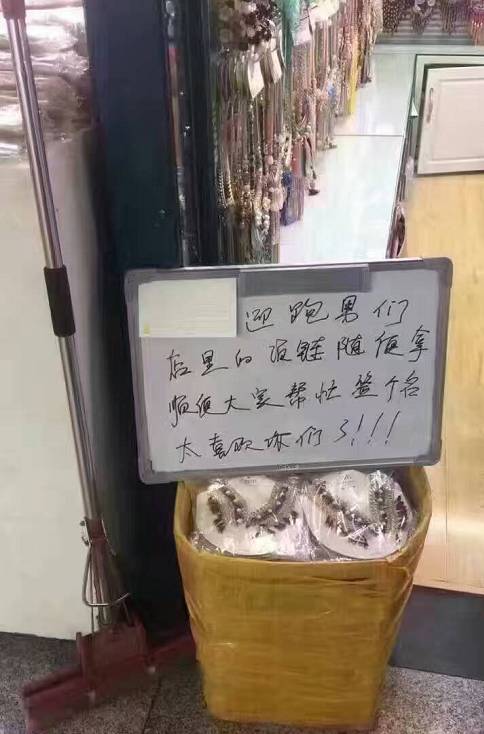 迎跑男们
店里的项链随便拿
顺便大家帮忙签个名
太喜欢你们了!!!